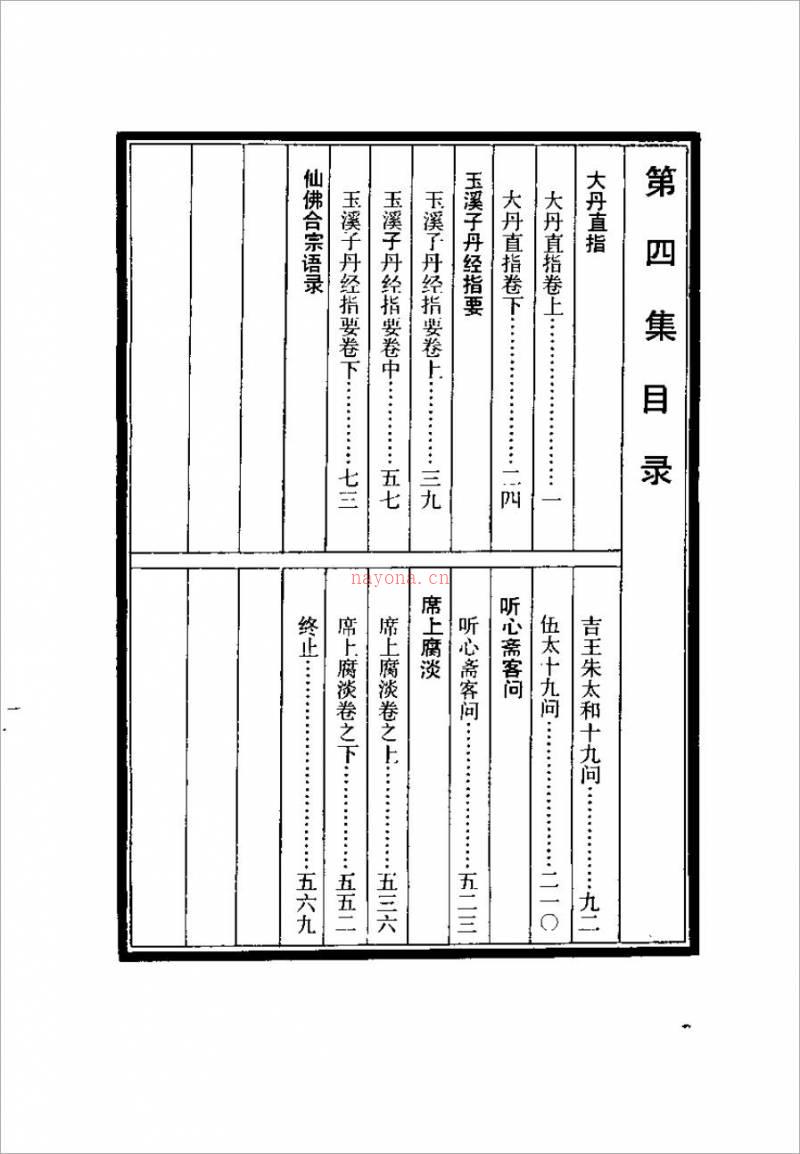 第四集目录
大丹直指
大丹直指卷上……………………一
大丹直指卷下……………………二四
玉溪子丹经指要
玉溪子丹经指要卷上……………三九
玉溪子丹经指要卷中……………五七
玉溪子丹经指要卷下……………七三
仙佛合宗语录
吉王朱太和十九问………………九二
伍太十九问………………………二一〇
听心斋客问
听心斋客问………………………五二三
席上腐淡
席上腐淡卷之上…………………五三六
席上腐淡卷之下…………………五五二
终止………………………………五六九
一
nayona.cn